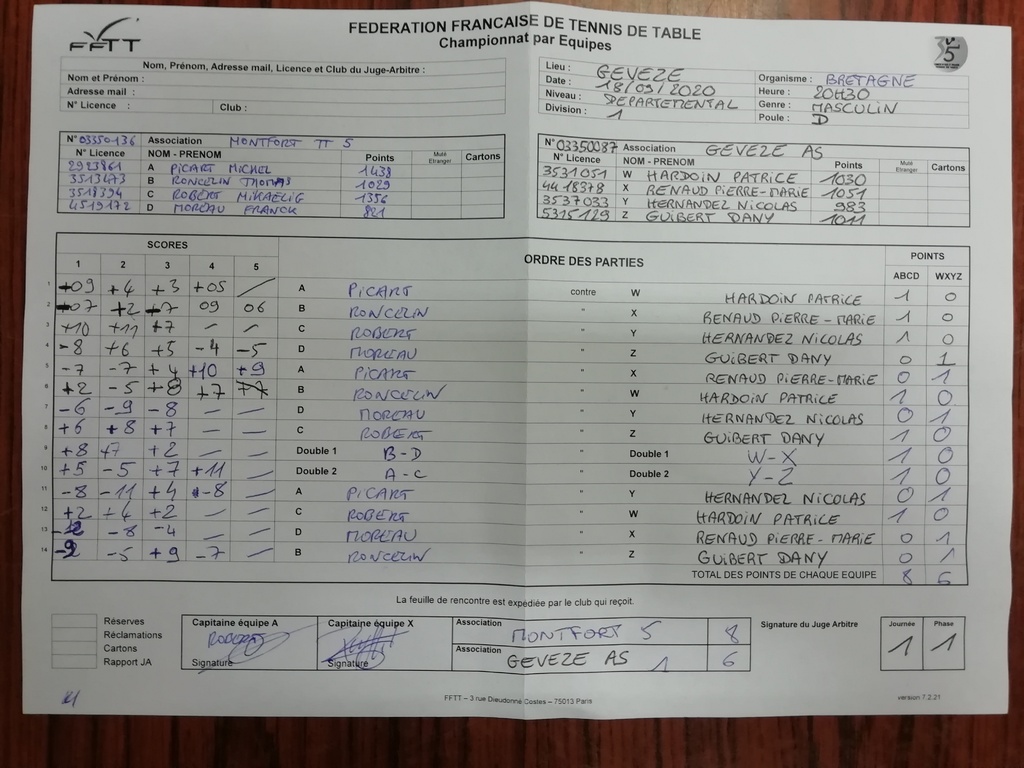 FEDERATION FRANCAISE DE TENNIS DE TABLE
Championnat par Equipes
FFTT
35
Nom, Prénom, Adresse mail, Licence et Club du Juge-Arbitre :
Nom et Prénom :
Adresse mail :
N° Licence : Club :
Lieu : GEVEZE
Date : 18/09/2020
Niveau : DEPARTEMENTAL
Division : 1
Organisme : BRETAGNE
Heure : 20H30
Genre : MASCULIN
Poule : D
N° 03350136 Association MONTFORT TT 5
N° Licence NOM - PRENOM Points Muté Etranger Cartons
2923861 A PICART MICHEL 1438
3513473 B RONCELIN THOMAS 1029
3518394 C ROBERT MIKAELIG 1356
4519172 D MOREAU FRANCK 821
N° 03350087 Association GEVEZE AS
N° Licence NOM - PRENOM Points Muté Etranger Cartons
3531051 W HARDOIN PATRICE 1030
4418378 X RENAUD PIERRE-MARIE 1051
3537033 Y HERNANDEZ NICOLAS 983
5315129 Z GUIBERT DANY 1011
SCORES ORDRE DES PARTIES POINTS
1 2 3 4 5 ABCD WXYZ
1 +09 +4 +3 +05 / A PICART contre W HARDOIN PATRICE 1 0
2 +07 +2 +7 09 06 B RONCELIN " X RENAUD PIERRE-MARIE 1 0
3 +10 +11 +7 - - C ROBERT " Y HERNANDEZ NICOLAS 1 0
4 -8 +6 +5 -4 -5 D MOREAU " Z GUIBERT DANY 0 1
5 -7 -7 +4 +10 +9 A PICART " X RENAUD PIERRE-MARIE 0 1
6 +2 -5 +8 +7 B RONCELIN " W HARDOIN PATRICE 1 0
7 -6 -9 -8 - - D MOREAU " Y HERNANDEZ NICOLAS 0 1
8 +6 +8 +7 - - C ROBERT " Z GUIBERT DANY 1 0
9 +8 +7 +2 - - Double 1 B-D " Double 1 W-X 1 0
10 +5 -5 +7 +11 - Double 2 A-C " Double 2 Y-Z 1 0
11 -8 -11 +4 -8 - A PICART " Y HERNANDEZ NICOLAS 0 1
12 +2 +4 +2 - - C ROBERT " W HARDOIN PATRICE 1 0
13 -8 -4 - - D MOREAU " X RENAUD PIERRE-MARIE 0 1
14 -9 -5 +9 -7 - B RONCELIN " Z GUIBERT DANY 0 1
TOTAL DES POINTS DE CHAQUE EQUIPE 8 6
La feuille de rencontre est expédiée par le club qui reçoit.
Réserves
Réclamations
Cartons
Rapport JA
Capitaine équipe A
ROBERT
Signature
Capitaine équipe X
Signature
Association MONTFORT 5 8
Association GEVEZE AS 1 6
Signature du Juge Arbitre
Journée Phase
1 1
FFTT – 3 rue Dieudonné Costes – 75013 Paris
version 7.2.21